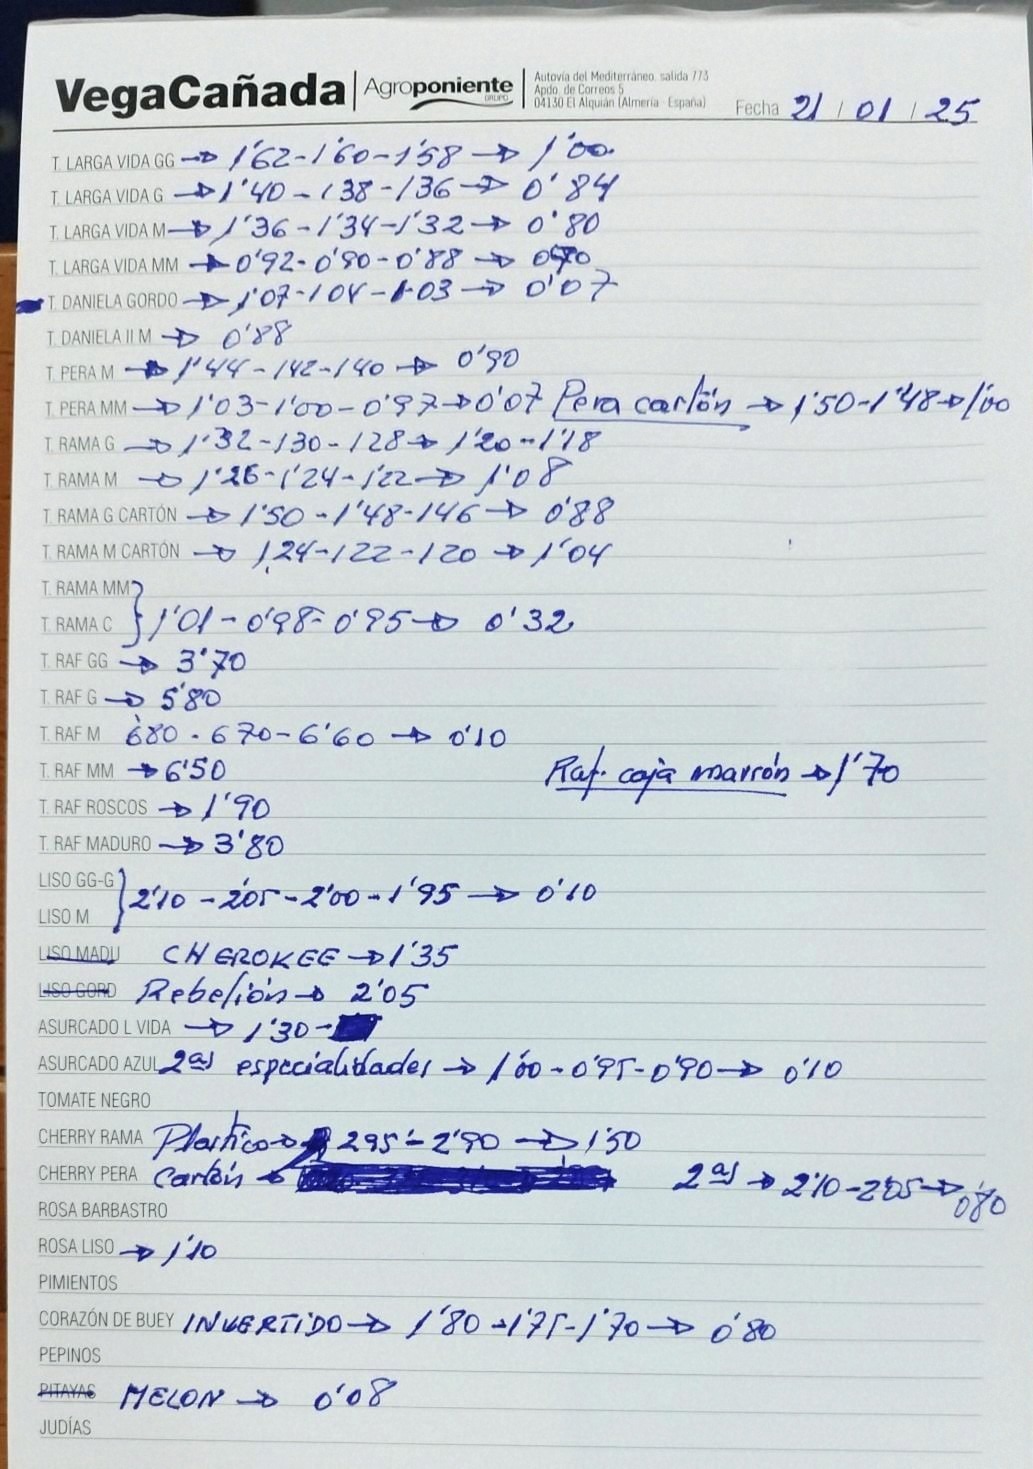 VegaCañada | Agroponiente GRUPO | Autovía del Mediterráneo. salida 773
Apdo. de Correos 5
04130 El Alquián (Almería - España)
Fecha 21 / 01 / 25
T. LARGA VIDA GG → 1'62-1'60-1'58 → 1'00.
T. LARGA VIDA G → 1'40 - 138-136 → 0'84
T. LARGA VIDA M → 1'36-1'34-1'32 → 0'80
T. LARGA VIDA MM → 0'92-0'90-0'88 →
T. DANIELA GORDO → 1'07-104-103 → 0'07
T. DANIELA II M → 0'88
T. PERA M → 1'44-142-140 → 0'90
T. PERA MM → 1'03-1'00-0'97 → 0'07 Pera cartón → 1'50-1'48 → 1'00
T. RAMA G → 1'32-130-128 → 1'20-1'18
T. RAMA M → 1'26-1'24-1'22 → 1'08
T. RAMA G CARTÓN → 1'50-1'48-146 → 0'88
T. RAMA M CARTÓN → 1,24-122-120 → 1'04
T. RAMA MM
T. RAMA C } 1'01-0'98-0'95 → 0'32
T. RAF GG → 3'70
T. RAF G → 5'80
T. RAF M 6'80-670-6'60 → 0'10
T. RAF MM → 6'50 Raf. caja marrón → 1'70
T. RAF ROSCOS → 1'90
T. RAF MADURO → 3'80
LISO GG-G
LISO M } 2'10-2'05-2'00-1'95 → 0'10
LISO MADU CHEROKEE → 1'35
LISO GORD Rebelión → 2'05
ASURCADO L VIDA → 1'30-
ASURCADO AZUL 2as especialidades → 1'00-0'95-0'90 → 0'10
TOMATE NEGRO
CHERRY RAMA Plastico → 295'-2'90 → 1'50
CHERRY PERA Cartón → 2as → 2'10-2'05 → 0'80
ROSA BARBASTRO
ROSA LISO → 1'10
PIMIENTOS
CORAZÓN DE BUEY INVERTIDO → 1'80-175-1'70 → 0'80
PEPINOS
PITAYAS MELON → 0'08
JUDÍAS